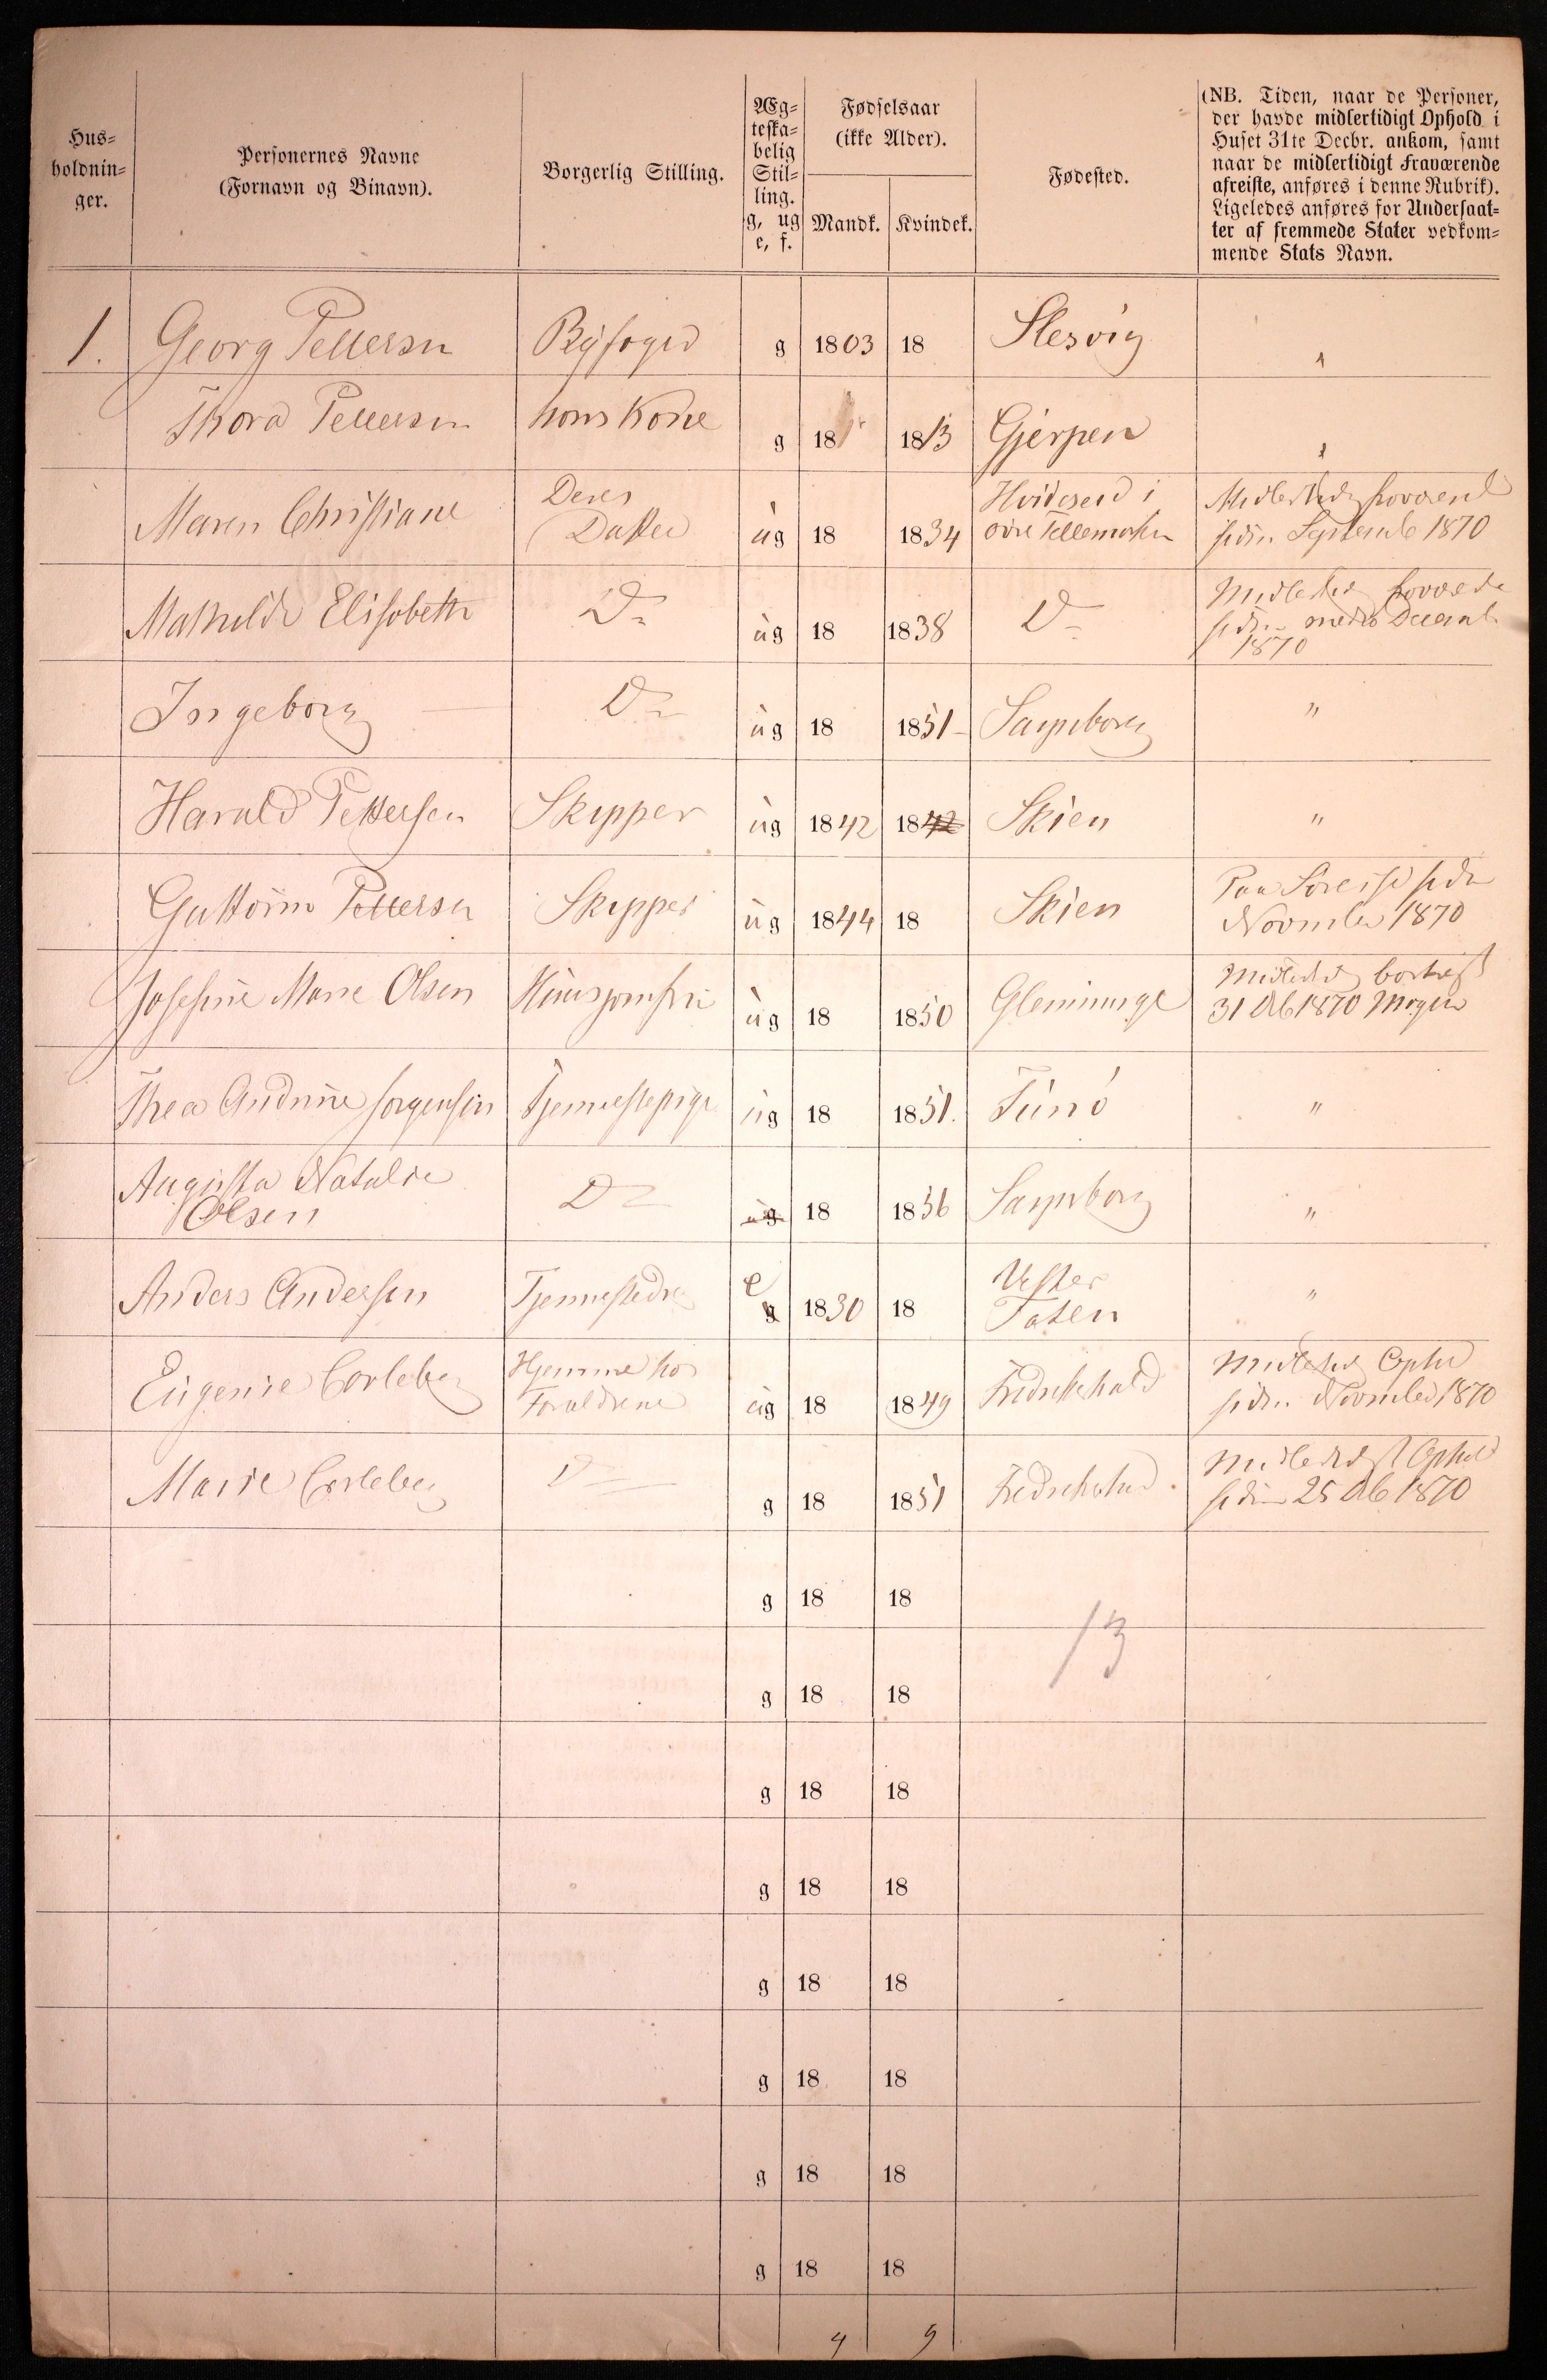 Hus-
holdnin-
ger.
Personernes Navne
(Fornavn og Binavn).
Borgerlig Stilling.
Æg-
teska-
belig
Stil-
ling.
g, ug
e, f.
Fødselsaar
(ikke Alder).
Mandk. Kvindek.
Fødested.
(NB. Tiden, naar de Personer,
der havde midlertidigt Ophold i
Huset 31te Decbr. ankom, samt
naar de midlertidigt fraværende
afreiste, anføres i denne Rubrik).
Ligeledes anføres for Undersaat-
ter af fremmede Stater vedkom-
mende Stats Navn.
1. Georg Pettersen Byfoged g 1803 18 Slesvig "
Thora Pettersen hans Kone g 18 1813 Gjerpen "
Maren Christiane Deres Datter ug 18 1834 Hvideseid i øvre Tellemarken Midlertidig fraværende siden Septemb 1870
Mathilde Elisabeth Do ug 18 1838 Do Midlertid fraværende siden medio Decemb 1870
Ingeborg Do ug 18 1851 Sarpsborg "
Harald Pettersen Skipper ug 1842 1842 Skien "
Guttorm Pettersen Skipper ug 1844 18 Skien Paa Søreise siden November 1870
Josefine Marie Olsen Huusjomfru ug 18 1850 Glemminge Midlertid bortreist 31 Dcb 1870 Morgen
Thea Andrine Jorgensen Tjenestepige ug 18 1851. Tunø "
Augusta Natalie Olsen Do ug 18 1856 Sarpsborg "
Anders Andersen Tjenestedreng e g 1830 18 Vester Toten "
Eugenie Corleberg Hjemme hos Forældrene ug 18 1849 Fredrikshald Midlertid Ophold siden November 1870
Marie Corleberg Do g 18 1851 Fredrikshald Midlertidigt Ophold siden 25 Dcb 1870
g 18 18
13
g 18 18
g 18 18
g 18 18
g 18 18
g 18 18
g 18 18
g 18 18
4 9